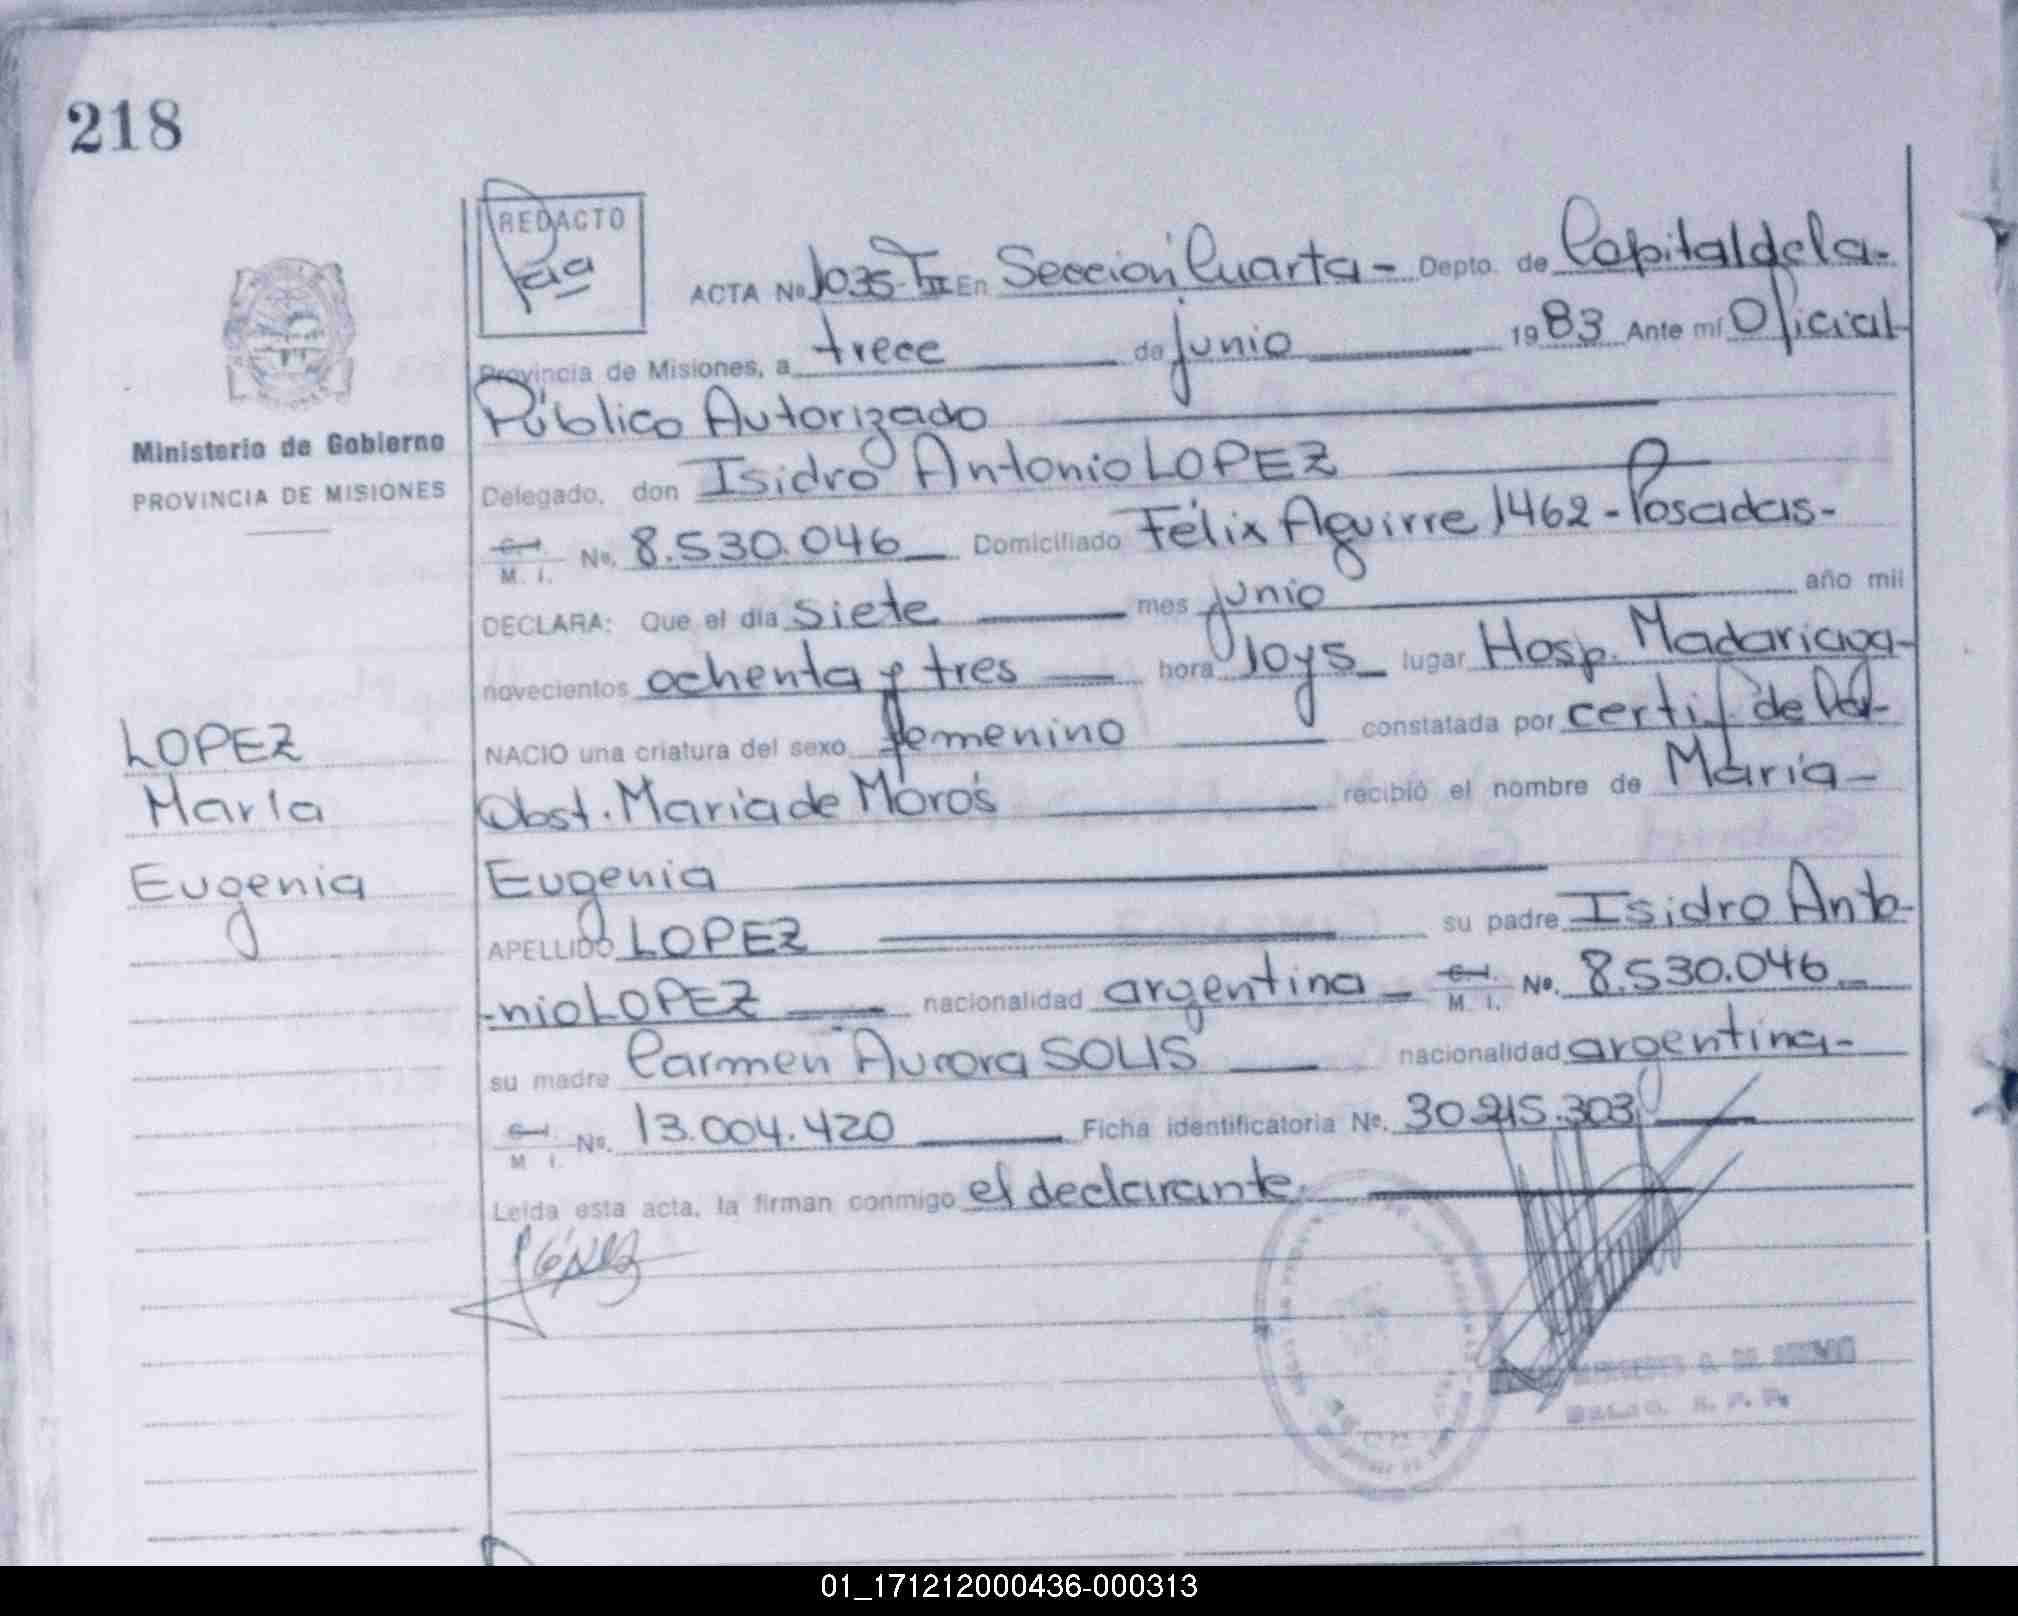 218
REDACTO
ACTA Nº 1035-TII En Sección Cuarta - Depto. de Capital de la -
Provincia de Misiones, a trece de junio 1983 Ante mí Oficial
Público Autorizado
Ministerio de Gobierno
PROVINCIA DE MISIONES
Delegado, don Isidro Antonio LOPEZ
C. I. M. I. No. 8.530.046 Domiciliado Félix Aguirre 1462 - Posadas -
DECLARA: Que el día siete mes junio año mil
novecientos ochenta y tres hora 10 y 5 lugar Hosp. Madariaga -
NACIO una criatura del sexo femenino constatada por certif de la
Obst. María de Moros recibió el nombre de María -
Eugenia
APELLIDO LOPEZ su padre Isidro Anto-
-nio LOPEZ nacionalidad argentina - C. I. M. I. No. 8.530.046
su madre Carmen Aurora SOLIS nacionalidad argentina -
C. I. M. I. No. 13.004.420 Ficha identificatoria No. 30.215.303
Leída esta acta, la firman conmigo el declarante.
LOPEZ
María
Eugenia
01_171212000436-000313